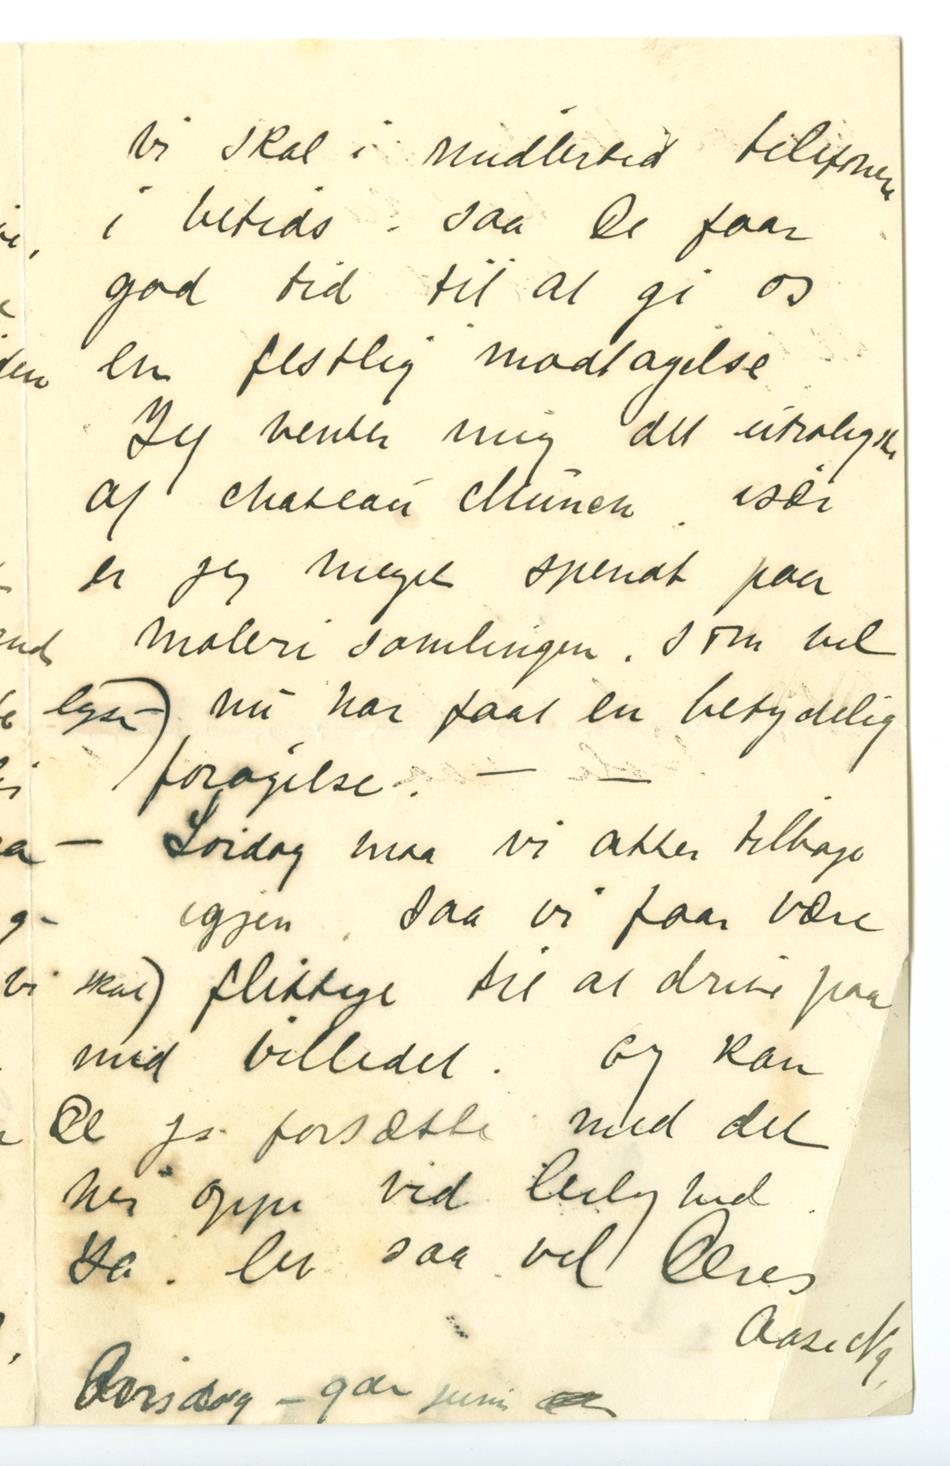 vi skal i midlertid telefonere
i betids. saa De faar
god tid til at gi os
en festlig modtagelse
Jeg venter mig det utroligste
af chateau Munch. især
er jeg meget spendt paa
maleri samlingen. som vel
nu har faat en betydelig
forøgelse. — —
Lördag maa vi atter tilbage
igjen. saa vi faar være
vi skal) flittige til at drive paa
med billedet. og kan
De jo forsætte med det
her oppe ved leilighed.
Ja. lev saa vel Deres
Aase N.